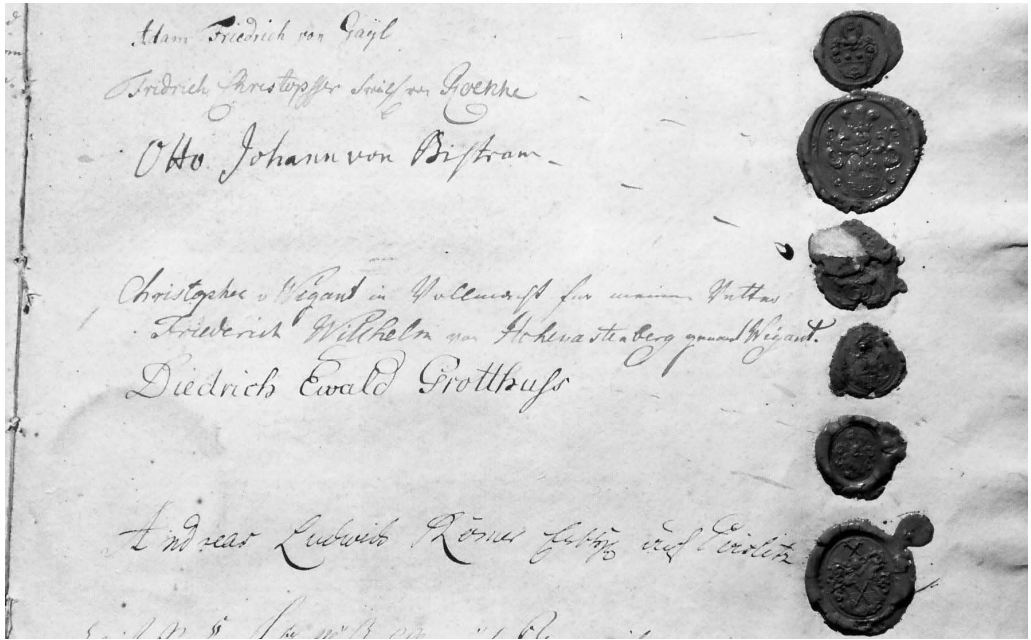 Adam Friedrich von Gayl
Fridrich Christopher von Roenne
Otto Johann von Bistram
Christopher v Wigant in Vollmacht fur meinen Vetter
Friederich Wilhelm von Hohenastenberg genant Wigant.
Diedrich Ewald Grotthuss
Andreas Ludwich Römer auf